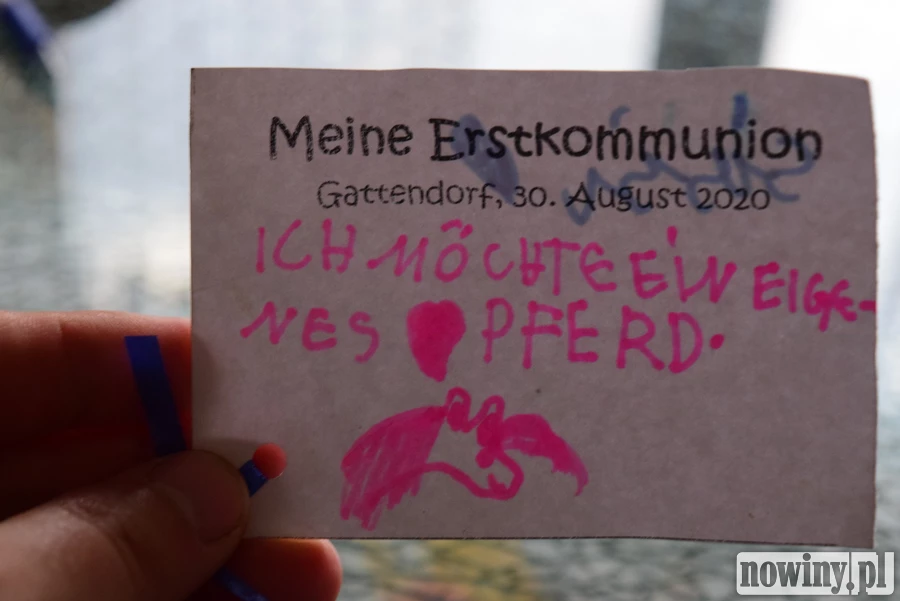 Meine Erstkommunion
Gattendorf, 30. August 2020
ICH MÖCHTE EIN EIGE-
NES PFERD.
nowiny.pl